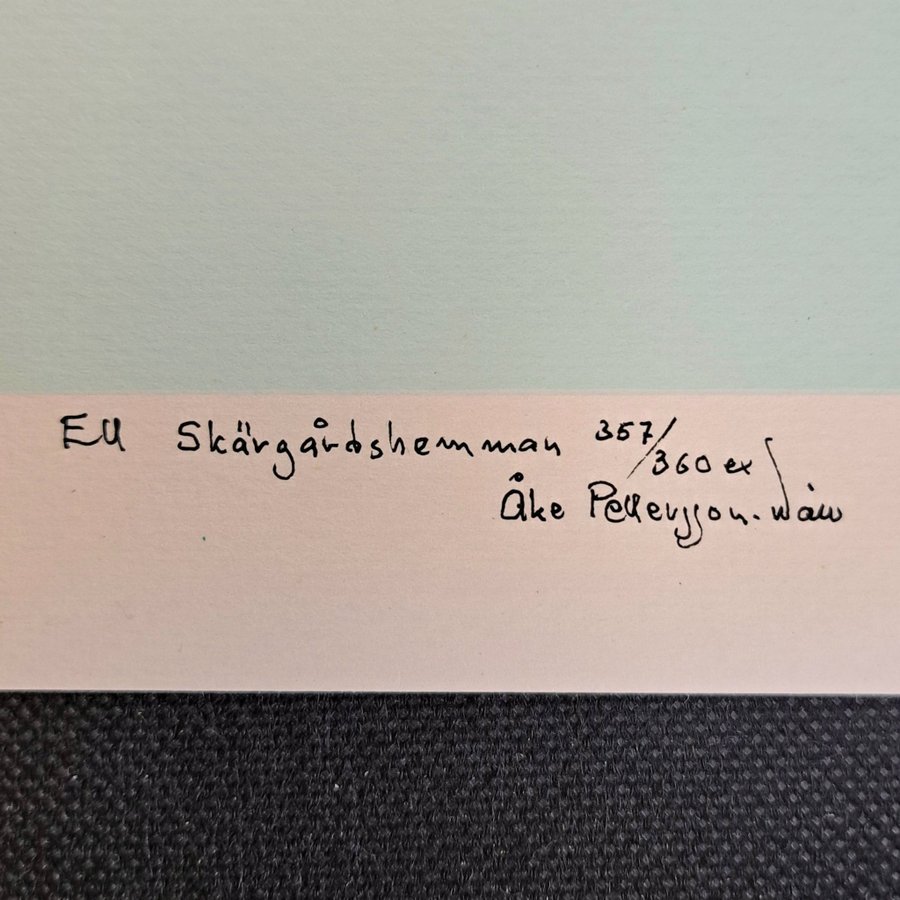 Ett Skärgårdshemman 357/360 ex
Åke Pettersson. Nåw